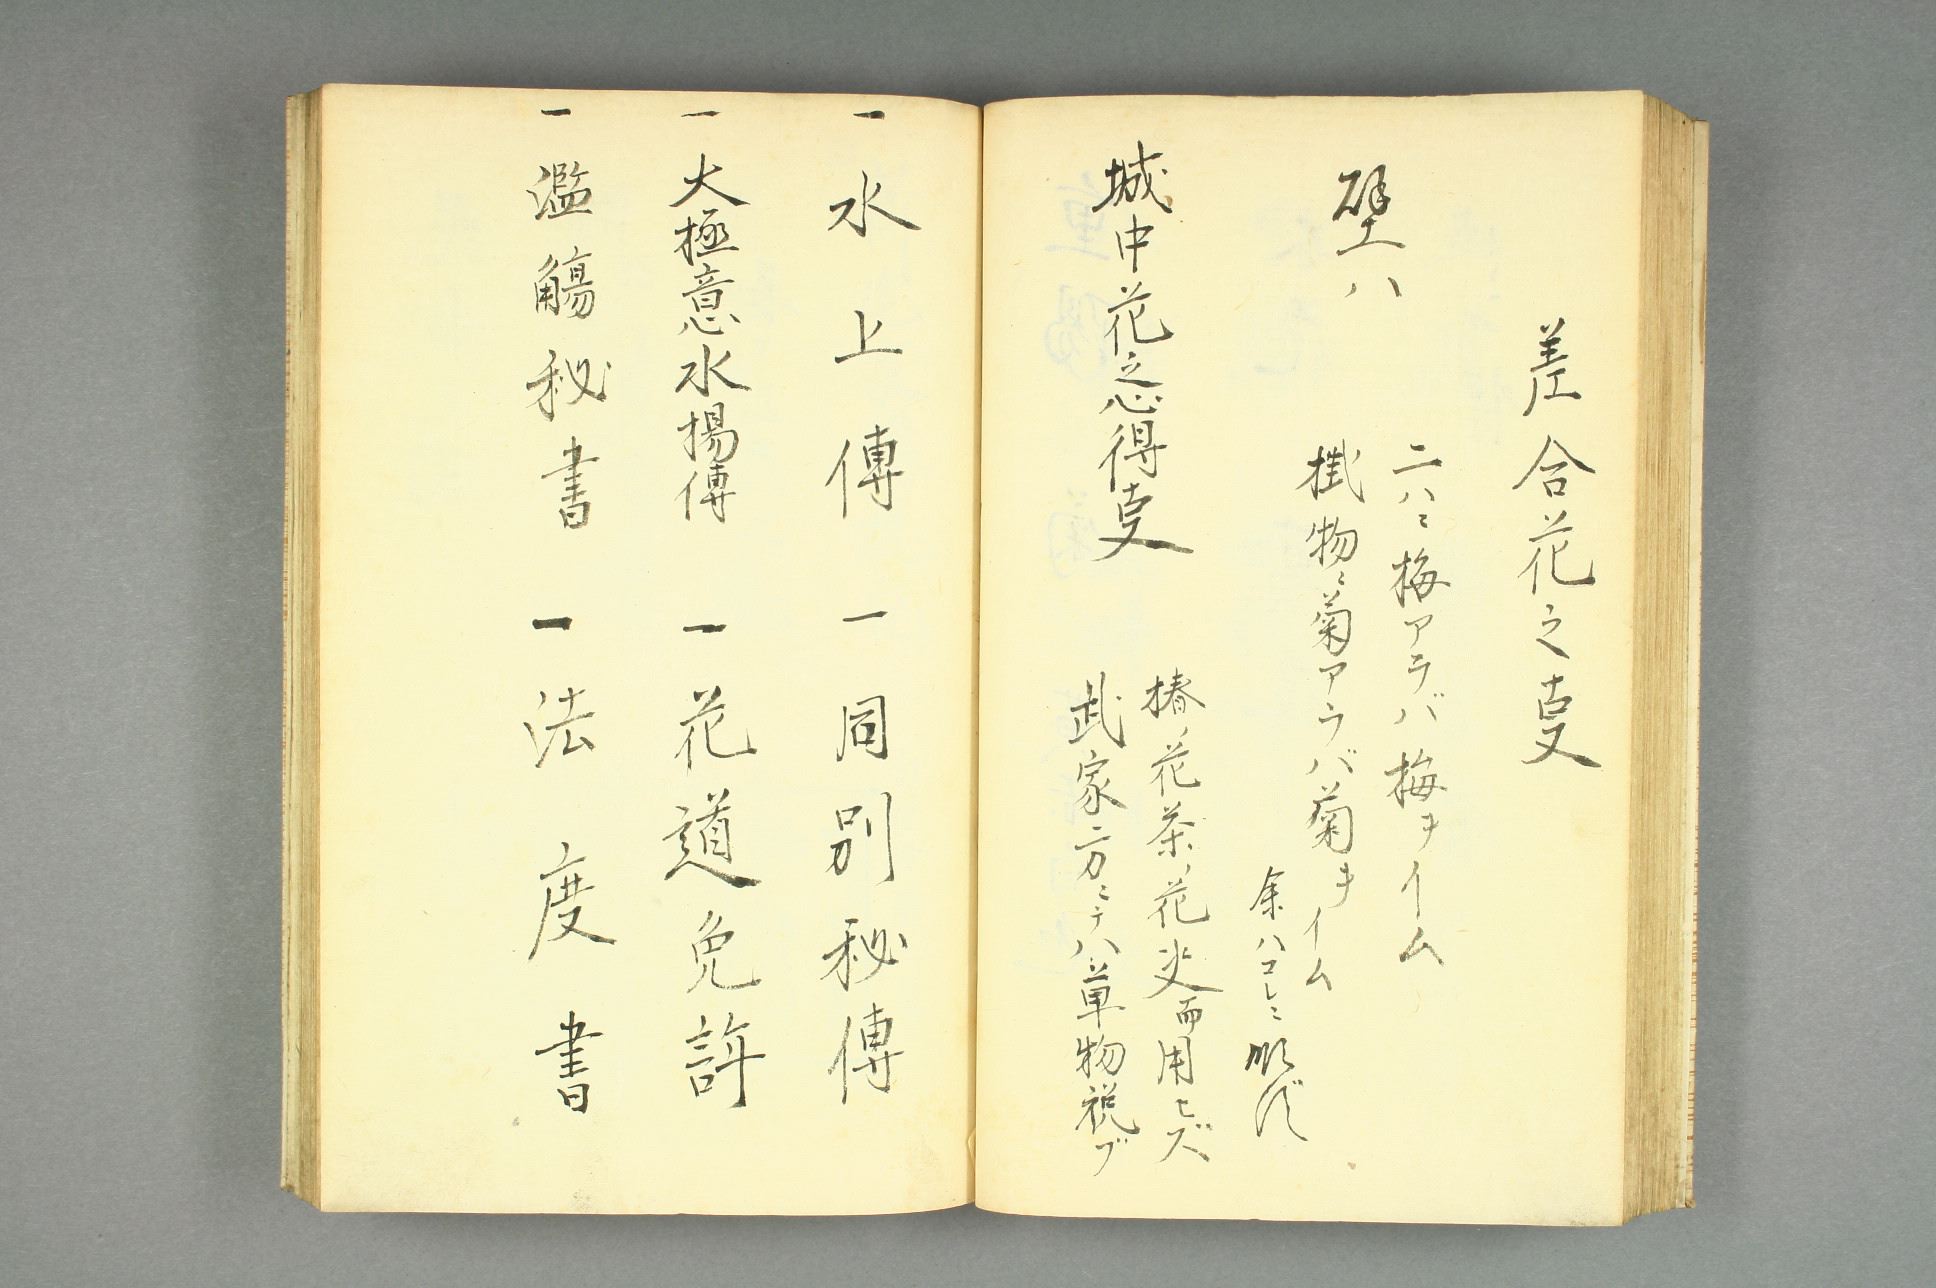 差合花之叓
壁ハ
ニハニ梅アラバ梅ヲイム
掛物ニ菊アラバ菊ヲイム
余ハコレニ順ズ
城中花之心得叓
椿ノ花茶ノ花决而用ヒズ
武家方ニテハ草物祝ブ
一水上傳 一同別秘傳
一大極意水揚傳 一花道免許
一濫觴秘書 一法度書